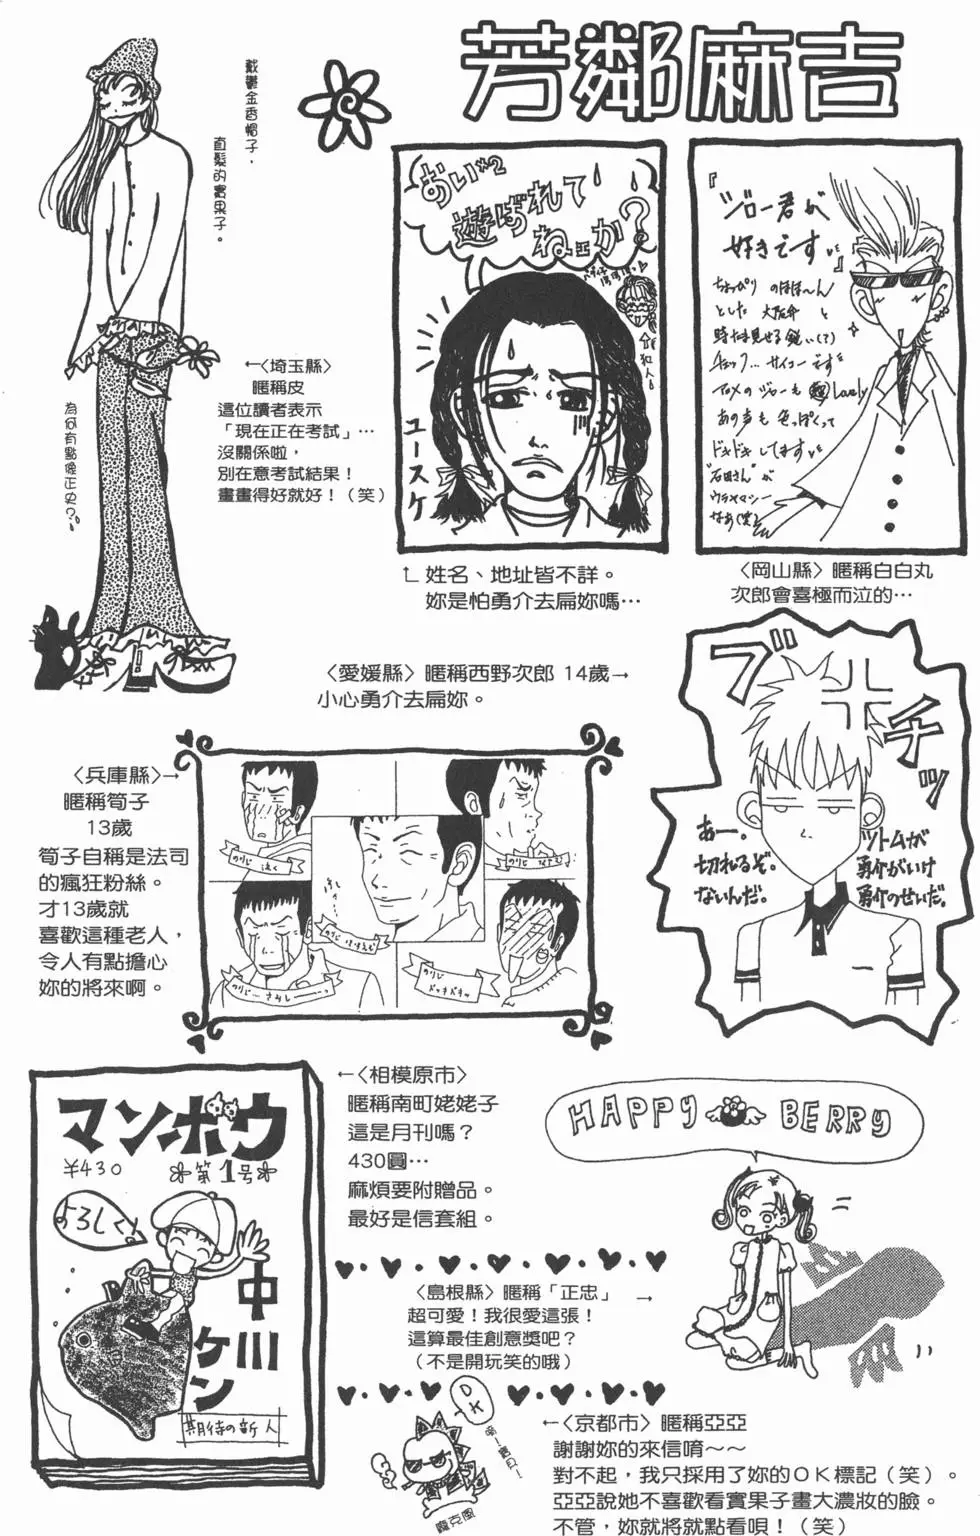 芳鄰麻吉
戴鬱金香帽子，
直髮的實果子。
為何有點像正史？
←〈埼玉縣〉
暱稱皮
這位讀者表示
「現在正在考試」…
沒關係啦，
別在意考試結果！
畫畫得好就好！（笑）
おい×2
遊ばれて
ねェか？
ユースケ
姓名、地址皆不詳。
妳是怕勇介去扁妳嗎…
『ジロー君が
好きです』
ちょっぴり のほほ〜ん
とした 大阪弁 と
時たま見せる鋭い(?)
チェック… サイコーです
あの声も 色っぽくって
ドキドキしてます
"石田さん"が
ウラヤマシー
なあ(笑)
〈岡山縣〉暱稱白白丸
次郎會喜極而泣的…
〈愛媛縣〉暱稱西野次郎 14歲→
小心勇介去扁妳。
ブチッ
あー。
切れるぞ。
ないんだ。
ツトムが
勇介がいけ
勇介のせいだ。
〈兵庫縣〉→
暱稱筍子
13歲
筍子自稱是法司
的瘋狂粉絲。
才13歲就
喜歡這種老人，
令人有點擔心
妳的將來啊。
のりじ 泣く
のりじ ほほえむ
のりじ…さみしーーっ
のりじ ドッキドキッ
マンボウ
¥430
第1号
よろしくね
中川ケン
期待の新人
←〈相模原市〉
暱稱南町姥姥子
這是月刊嗎？
430圓…
麻煩要附贈品。
最好是信套組。
HAPPY BERRY
〈島根縣〉暱稱「正忠」 →
超可愛！我很愛這張！
這算最佳創意獎吧？
（不是開玩笑的哦）
OK
龐克風
←〈京都市〉暱稱亞亞
謝謝妳的來信唷～～
對不起，我只採用了妳的ＯＫ標記（笑）。
亞亞說她不喜歡看實果子畫大濃妝的臉。
不管，妳就將就點看唄！（笑）